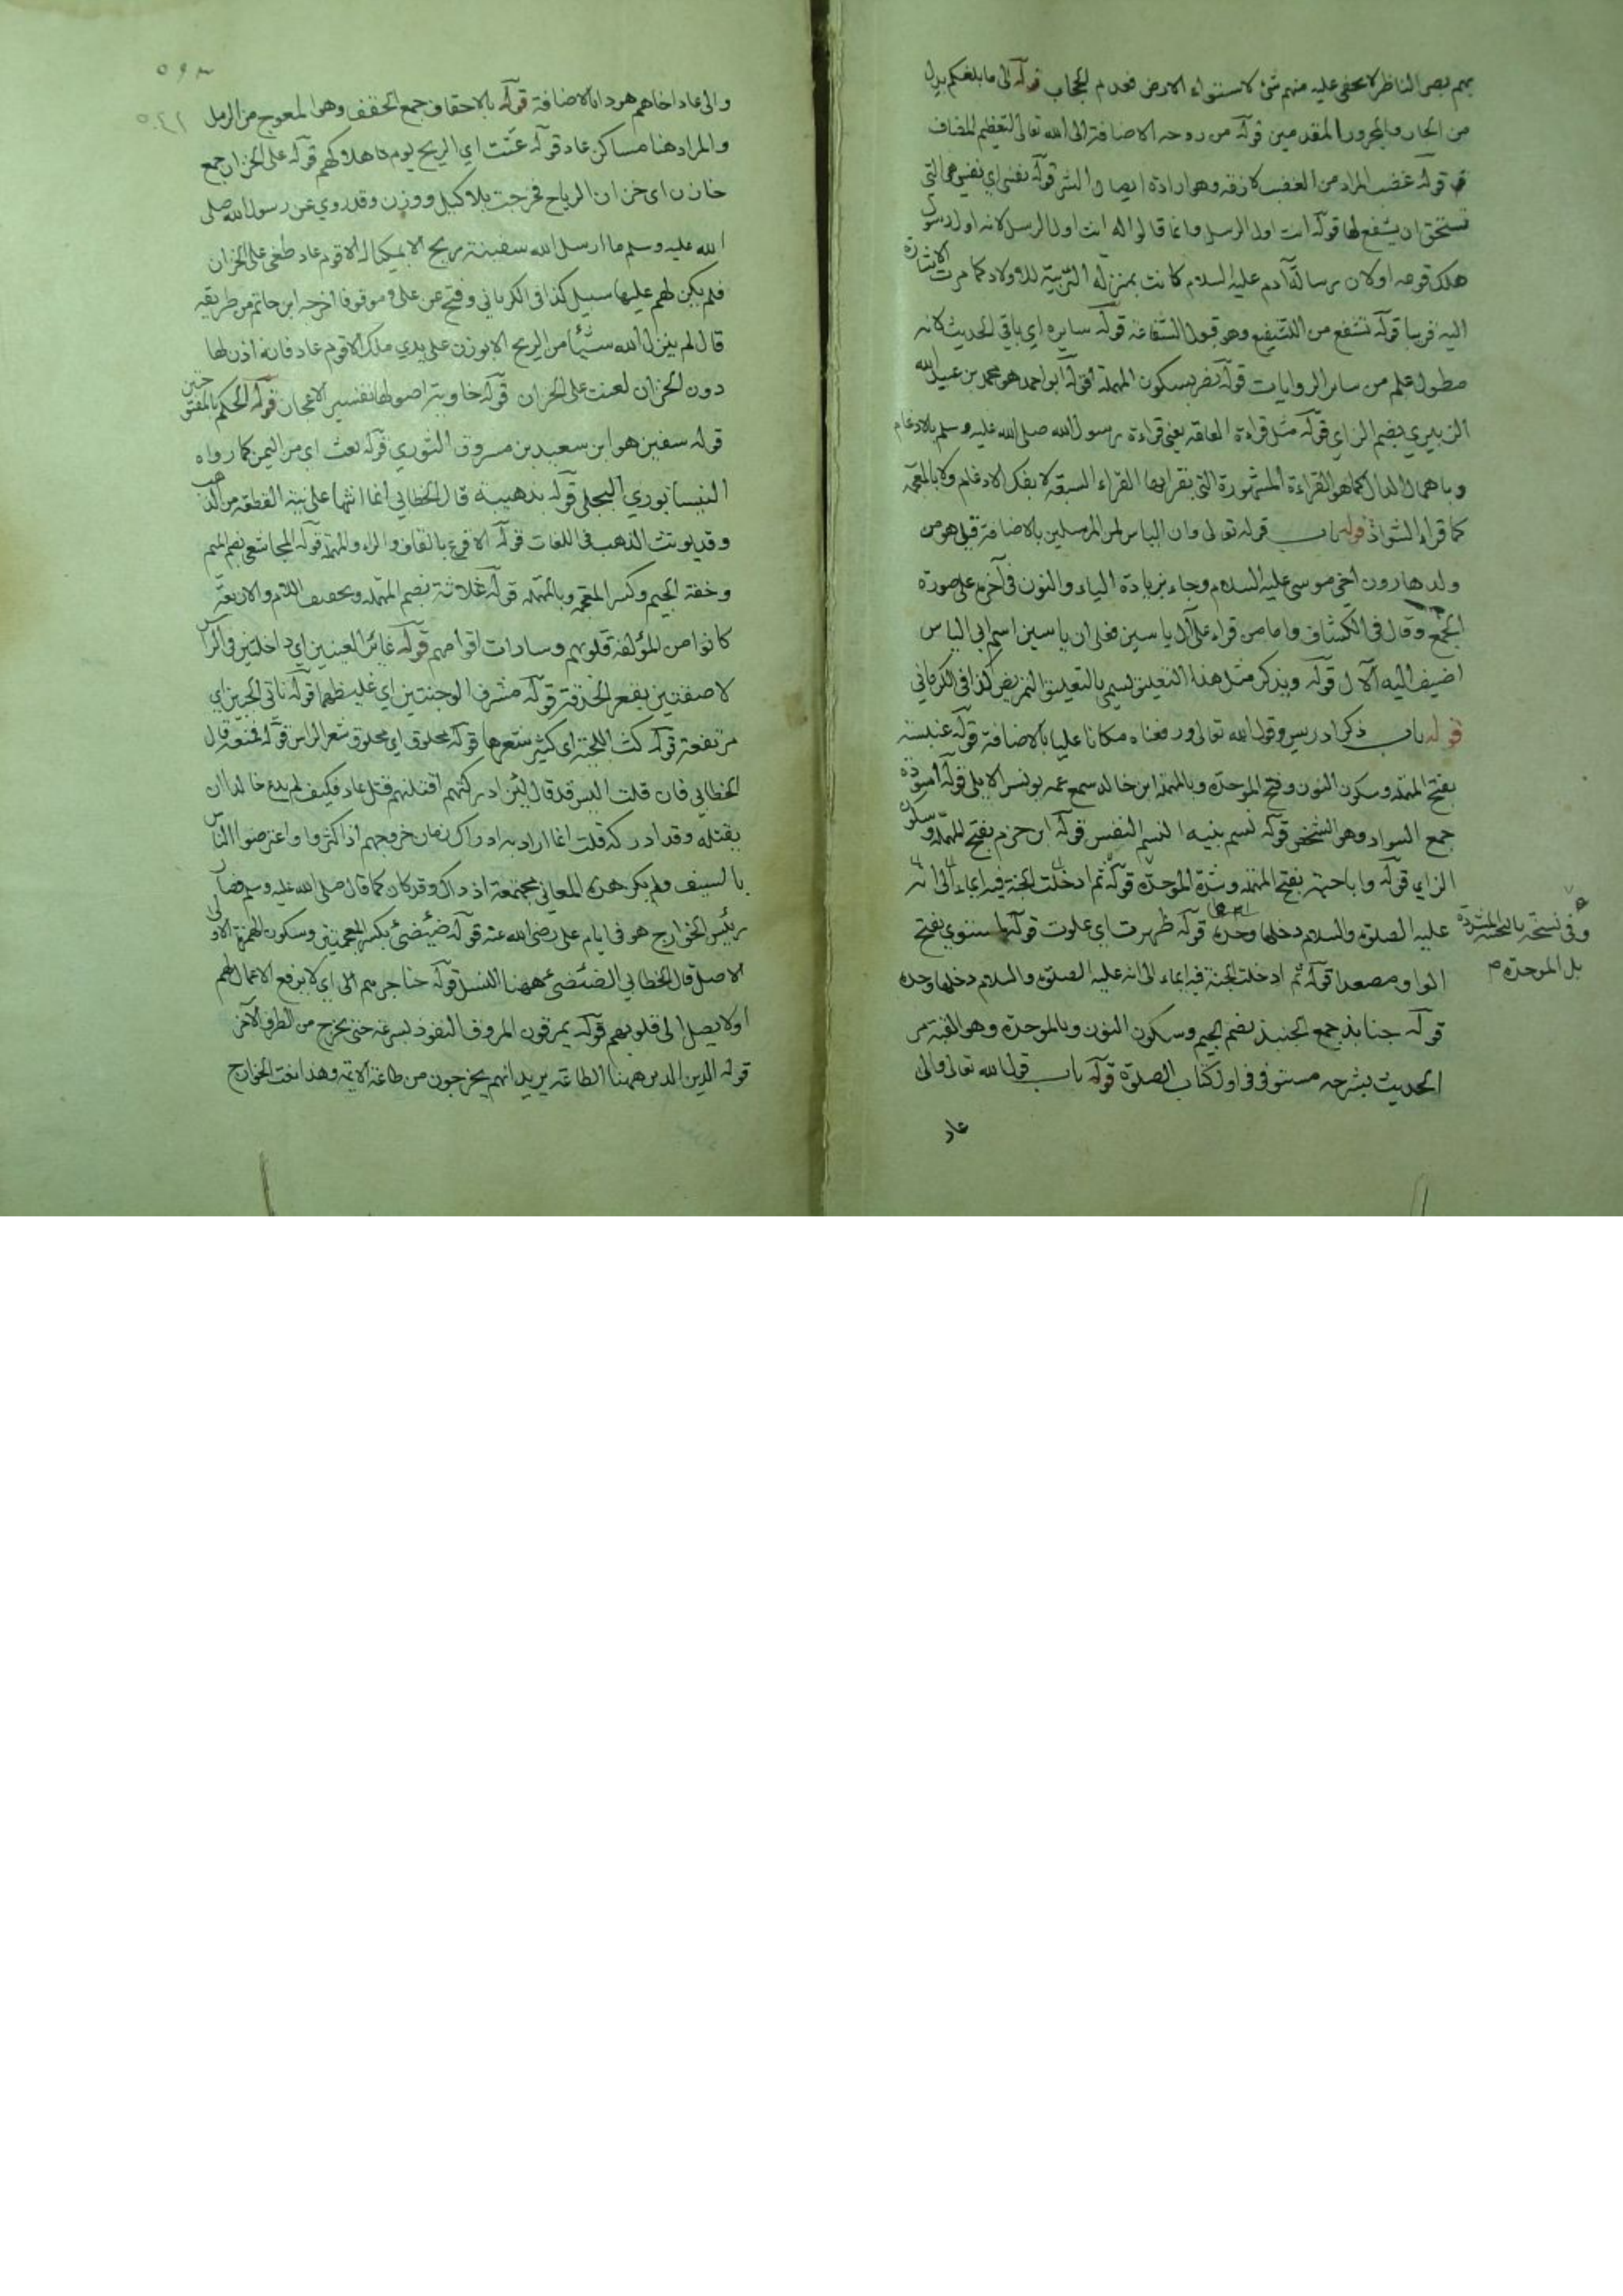 بهم بصر الناظر لا يخفى عليه منهم شئ لاستواء الارض فعدم الحجاب قوله الى ما بلغكم بدل
من الجار والمجرور المقدمين قوله من روحه الاضافة الى الله تعالى لتعظيم المضاف
قوله غضب المراد من الغضب لازمه وهو ارادة ايصال الشر قوله نفسي اي نفسي هي التي
تستحق ان يشفع لها قوله انت اول الرسل وانما قالوا له انت اول الرسل لانه اول رسول
هلك قومه اولان رسالة آدم عليه السلام كانت بمنزلة التربية للاولاد كما مرت الاشارة
اليه قريبا قوله تشفع من التشفيع وهو قبول الشفاعة قوله سايره اي باقي الحديث لانه
مطول علم من سائر الروايات قوله نصر بسكون المهملة قوله ابو احمد هو محمد بن عبد الله
الزبيري بضم الزاي قوله مثل قراءة العامة يعني قراءة رسول الله صلى الله عليه وسلم بالادغام
وباهمال الدال كما هو القراءة المشهورة التي يقرا بها القراء السبعة لا بفك الادغام ولا بالمعجمة
كما قراء الشواذ قوله باب قوله تعالى وان الياس لمن المرسلين بالاضافة قيل هو من
ولد هارون اخي موسى عليه السلام وجاء بزيادة الياء والنون في آخره على صورة
الجمع وقال في الكشاف واما من قراء على آل ياسين فعلى ان ياسين اسم ابي الياس
اضيف اليه الآل قوله ويذكر مثل هذا التعليق يسمى بالتعليق التمريض كذا في الكرماني
قوله باب ذكر ادريس وقول الله تعالى ورفعناه مكانا عليا بالاضافة قوله عنبسة
بفتح المهملة وسكون النون وفتح الموحدة وبالمهملة ابن خالد سمع عمه يونس الايلي قوله اسودة
جمع السواد وهو الشخص قوله نسم بنيه النسم النفس قوله ابن حزم بفتح المهملة وسكون
الزاي قوله وابا حية بفتح المهملة وشدة الموحدة قوله ثم ادخلت الجنة فيه ايماء الى انه
عليه الصلوة والسلام دخلها وحده قوله ظهرت اي علوت قوله لمستوى بفتح
وفي نسخة بالتحتية المشددة
بل الموحدة م
الواو مصعدا قوله ثم ادخلت الجنة فيه ايماء الى انه عليه الصلوة والسلام دخلها وحده
قوله جنابذ جمع الجنبذ بضم الجيم وسكون النون وبالموحدة وهو القبة مر
الحديث بشرحه مستوفى في اول كتاب الصلوة قوله باب قول الله تعالى والى
عاد
والى عاد اخاهم هودا بالاضافة قوله بالاحقاف جمع الحقف وهو المعوج من الرمل
والمراد هنا مساكن عاد قوله عتت اي الريح يوم هلاكهم قوله على الخزان جمع
خازن اي خزان الرياح فخرجت بلا كيل ووزن وقد روي عن رسول الله صلى
الله عليه وسلم ما ارسل الله سفينة ريح الا بمكيال الا قوم عاد طغى على الخزان
فلم يكن لهم عليها سبيل كذا في الكرماني وفتح عن علي موقوفا اخرجه ابن حاتم من طريقه
قال لم ينزل الله شيئا من الريح الا بوزن على يدي ملك الا قوم عاد فانه اذن لها
دون الخزان لعتت على الخزان قوله خاوية اصولها تفسير الاعجاز قوله الحكم بالمفتوحتين
قوله سفين هو ابن سعيد بن مسروق الثوري قوله بعث اي من اليمن كما رواه
النيسابوري البجلي قوله بذهيبة قال الخطابي انما انثها على نية القطعة من الذهب
وقد يونث الذهب في اللغات قوله الاقرع بالقاف والراء والمهملة قوله المجاشعي بضم الميم
وخفة الجيم وكسر المعجمة وبالمهملة قوله علاثة بضم المهملة وتخفيف اللام والاربعة
كانوا من المؤلفة قلوبهم وسادات اقوامهم قوله غائر العينين اي داخلتين في الراس
لاصقتين بقعر الحدقة قوله مشرف الوجنتين اي غليظهما قوله ناتي الجبين اي
مرتفعة قوله كث اللحية اي كثير شعرها قوله محلوق اي محلوق شعر الراس قوله فمنعه قال
الخطابي فان قلت اليس قد قال لئن ادركتهم اقتلنهم قتل عاد فكيف لم يدع خالدا ان
يقتله وقد ادركه قلت انما اراد به ادراك زمان خروجهم اذا كثروا واعترضوا الناس
بالسيف ولم يكن هذه المعاني مجتمعة اذ ذاك وقد كان كما قال صلى الله عليه وسلم فصار
رئيس الخوارج هو في ايام على رضى الله عنه قوله ضئضئ بكسر المعجمتين وسكون الهمزة الاولى
الاصل قال الخطابي الضئضئ ههنا النسل قوله حناجرهم اي لا يرفع الاعمال لهم
اولا يصل الى قلوبهم قوله يمرقون المروق النفوذ بسرعة حتى يخرج من الطرف الآخر
قوله الدين الدين ههنا الطاعة يريد انهم يخرجون من طاعة الائمة وهذا نعت الخوارج